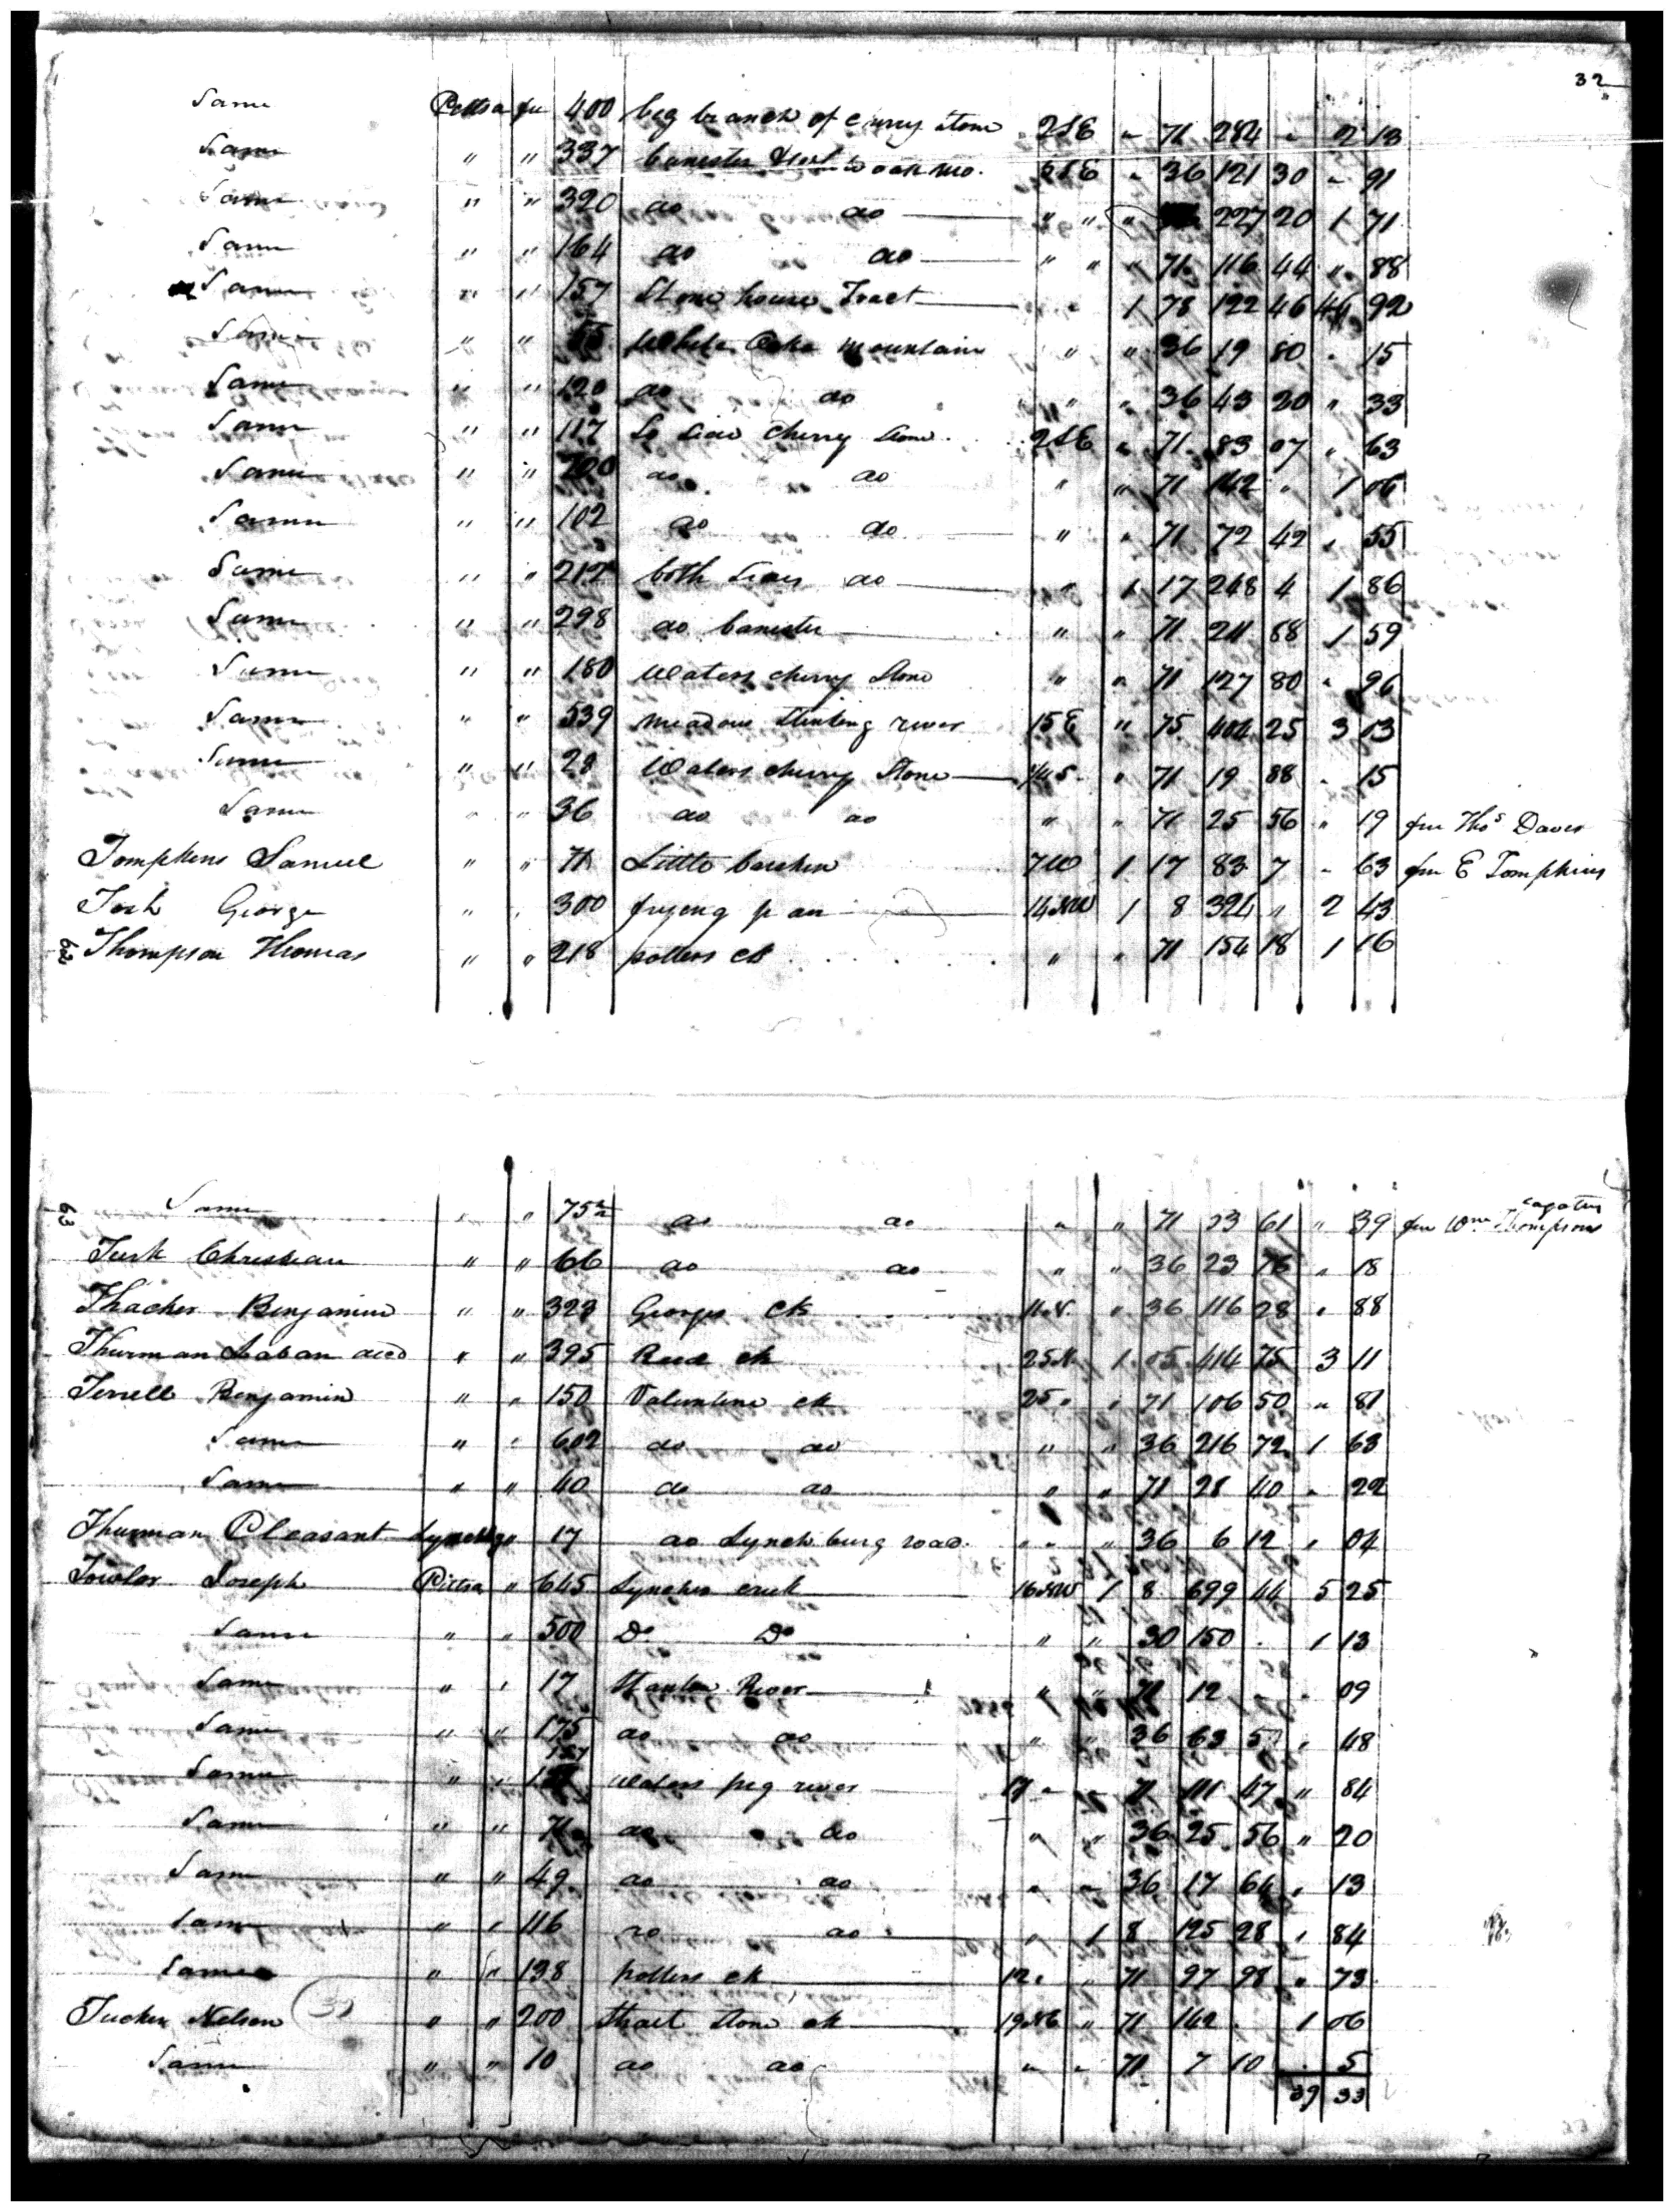 32
Same Pittsa fee 400 big branch of cherry stone 2 SE " 71 284 " 2 13
Same " " 337 banister & Wt oak mo. SE " 36 121 30 " 91
Same " " 320 do do " " " 227 20 1 71
Same " " 164 do do " " " 71 116 44 " 88
Same " " 157 Stone house Tract " 1 78 122 46 92
Same " " 55 White Oake mountain " " 36 19 80 " 15
Same " " 120 do do " " 36 43 20 " 33
Same " " 117 So Side Cherry Stone 2 SE " 71 83 07 " 63
Same " " 200 do do " " 71 142 " 1 06
Same " " 102 do do " " 71 72 42 " 55
Same " " 212 both Sides do " 1 17 248 4 1 86
Same " " 298 do banister " " 71 211 58 1 59
Same " " 180 Waters cherry Stone " " 71 127 80 " 96
Same " " 539 meadow Stinking river 15 E " 75 404 25 3 03
Same " " 28 Waters cherry Stone " 71 19 88 " 15
Same " " 36 do do " " 71 25 56 " 19 fm Thos Daves
Tompkins Samuel " " 71 Little bearskin 7 W 1 17 83 7 " 63 fm E Tompkins
Tosh George " " 300 frying pan 14 NW 1 8 324 " 2 43
62 Thompson Thomas " " 218 potters ck " " 71 154 78 1 16
63 Same " " 75 1/2 do do " " 71 53 61 " 39 fm Wm Thompsons
Tosh Christian " " 66 do do " " 36 23 76 " 18
Thacker Benjamin " " 323 Georges Ck 11 N. " 36 116 28 " 88
Thurman Laban decd " " 395 Reed ck 25 N. 1 05 414 75 3 11
Terrell Benjamin " " 150 Valentine ck 25 " " 71 106 50 " 81
Same " " 602 do do " " 36 216 72 1 63
Same " " 40 do do " " 71 28 40 " 22
Thurman Pleasant Lynchbg " 17 do Lynchburg road " " " 36 6 12 " 04
Towler Joseph Pittsa " 645 Lynches creek 16 NW 1 8 699 44 5 25
Same " " 500 Do Do " " 30 150 . 1 13
Same " " 17 Stanton River " " 71 12 . " 09
Same " " 175 do do " " 36 63 5 " 48
Same " " 157 Waters pig river 17 " " 71 111 47 " 84
Same " " 71 do do " " 36 25 56 " 20
Same " " 49 do do " " 36 17 64 " 13
Same " " 116 do do " 1 8 125 28 " 84
Same " " 138 potters ck 12 " " 71 97 98 " 73
Tucker Nelson " " 200 Strait Stone ck 19 NE " 71 142 . 1 06
Same " " 10 do do " " 71 7 10 . 5
39 33